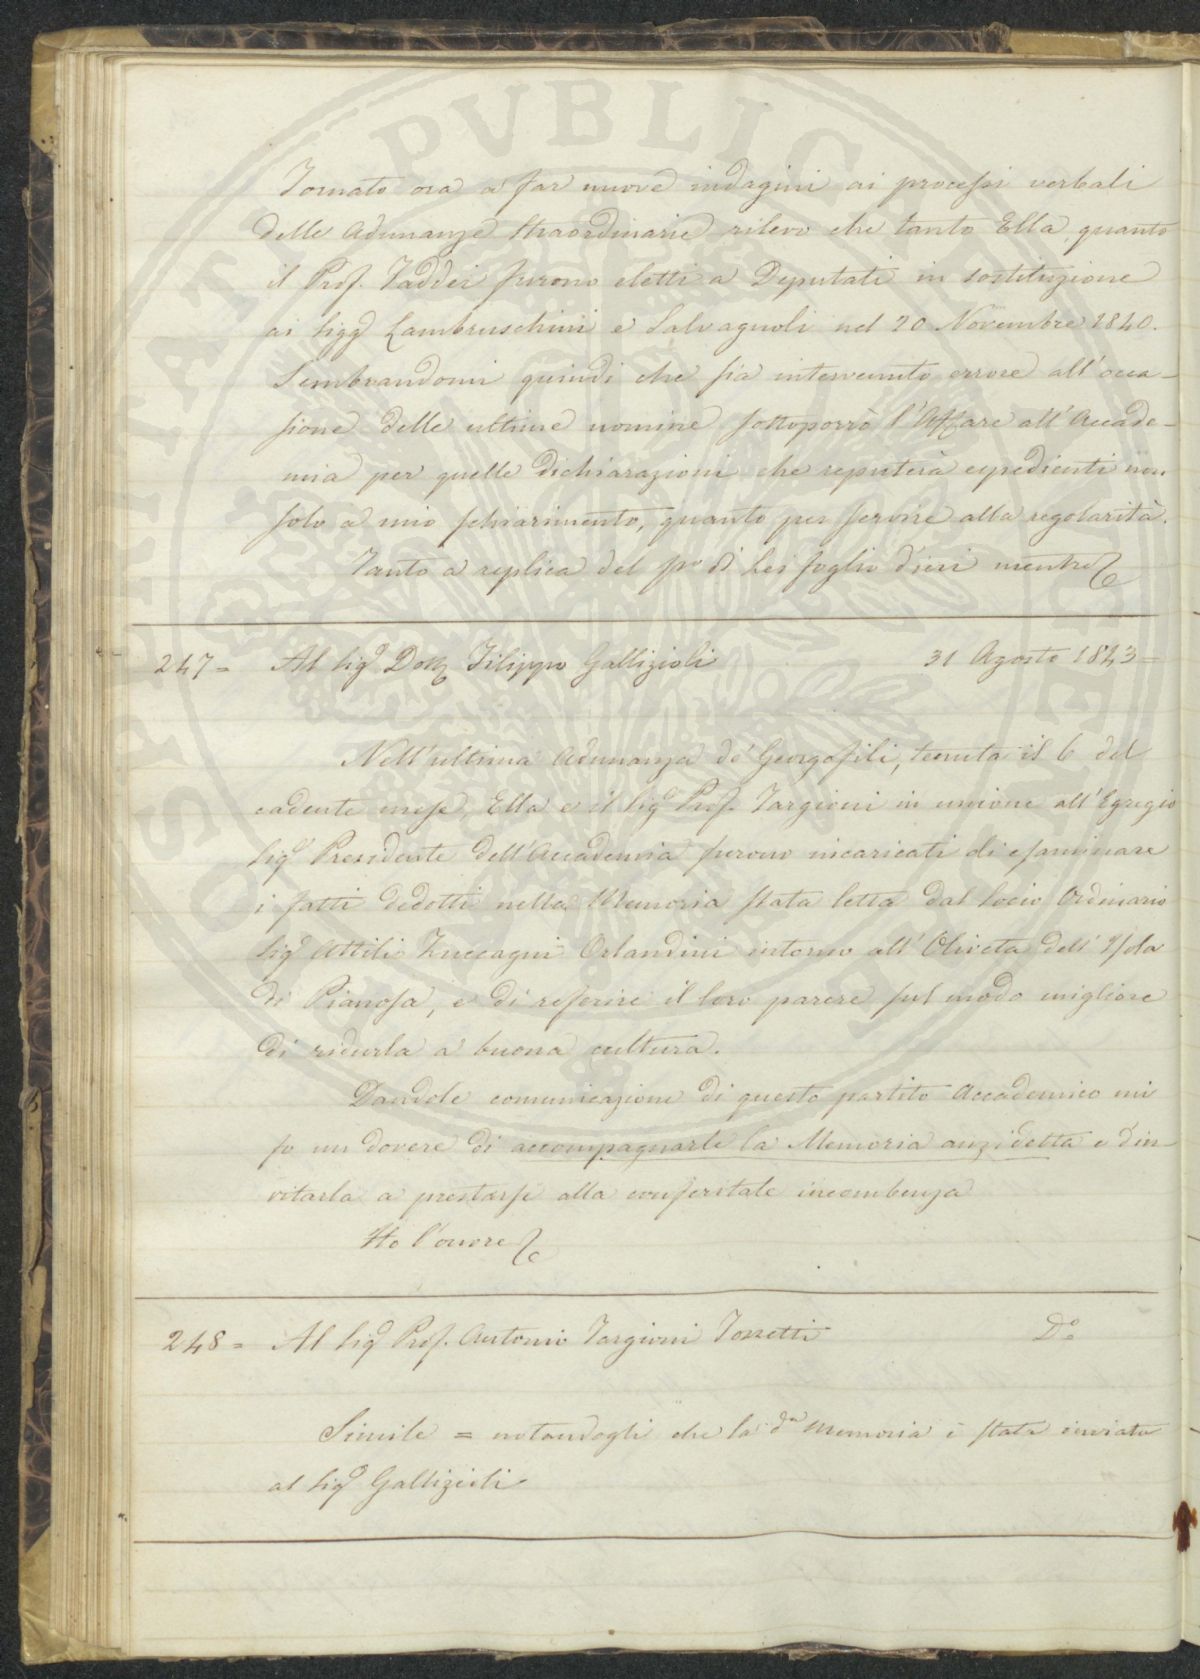 Tornato ora a far nuove indagini ai processi verbali
delle Adunanze straordinarie rilevo che tanto Ella quanto
il Prof. Taddei furono eletti a Deputati in sostituzione
ai Sigg.i Lambruschini e Salvagnoli nel 20 Novembre 1840.
Sembrandomi quindi che sia intervenuto errore all'occa-
sione delle ultime nomine sottoporrò l'Affare all'Accade-
mia per quelle dichiarazioni che reputerà espedienti non
solo a mio schiarimento, quanto per servire alla regolarità.
Tanto a replica del p.o di Lei foglio d'ieri mentre &
247 = Al Sig.e Dott. Filippo Gallizioli 31 Agosto 1843 =
Nell'ultima Adunanza de' Georgofili, tenuta il 6 del
cadente mese, Ella e il Sig.e Prof. Targioni in unione all'Egregio
Sig.e Presidente dell'Accademia furono incaricati di esaminare
i fatti dedotti nella Memoria stata letta dal Socio Ordinario
Sig.e Attilio Zuccagni Orlandini intorno all'Oliveta dell'Isola
di Pianosa, e di referire il loro parere sul modo migliore
di ridurla a buona cultura.
Dandole comunicazione di questo partito Accademico mi
fo un dovere di accompagnarle la Memoria anzidetta e d'in-
vitarla a prestarsi alla conferitale incombenza
Ho l'onore &
248 = Al Sig.e Prof. Antonio Targioni Tozzetti D.o
Simile = notandogli che la d.a Memoria è stata inviata
al Sig.e Gallizioli
SOSPITATI PVBLICAE AVGENDAE